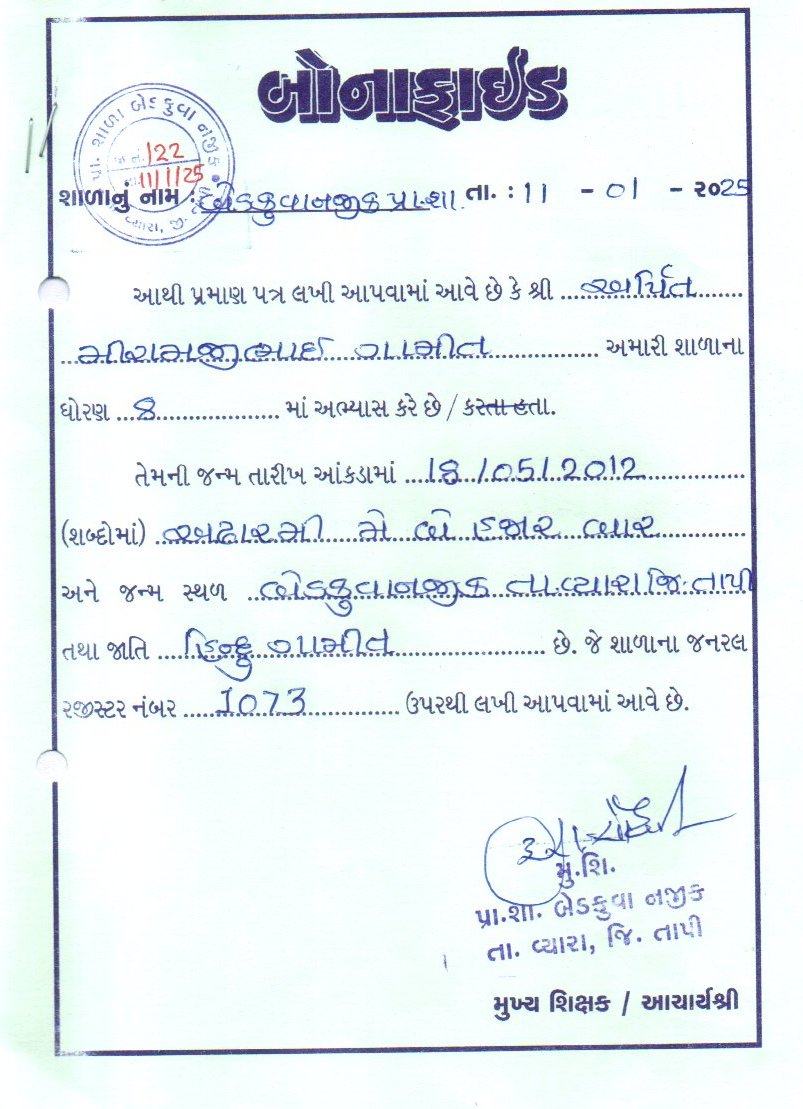 બોનાફાઈડ
પ્રા. શાળા બેડકુવા નજીક
જા નં. 122
તા. 11/1/25
વ્યારા, જી.
શાળાનું નામ : બેડકુવાનજીક પ્રા.શા. તા. : 11 - 01 - ૨૦25
આથી પ્રમાણ પત્ર લખી આપવામાં આવે છે કે શ્રી અર્પિત
ગામીત અમારી શાળાના
ધોરણ 8 માં અભ્યાસ કરે છે / કરતા હતા.
તેમની જન્મ તારીખ આંકડામાં 18/05/2012
(શબ્દોમાં) અઢારમી મે બે હજાર બાર
અને જન્મ સ્થળ બેડકુવાનજીક તા.વ્યારા જિ.તાપી
તથા જાતિ હિન્દુ ગામીત છે. જે શાળાના જનરલ
રજીસ્ટર નંબર 1073 ઉપરથી લખી આપવામાં આવે છે.
મુ.શિ.
પ્રા.શા. બેડકુવા નજીક
તા. વ્યારા, જિ. તાપી
મુખ્ય શિક્ષક / આચાર્યશ્રી